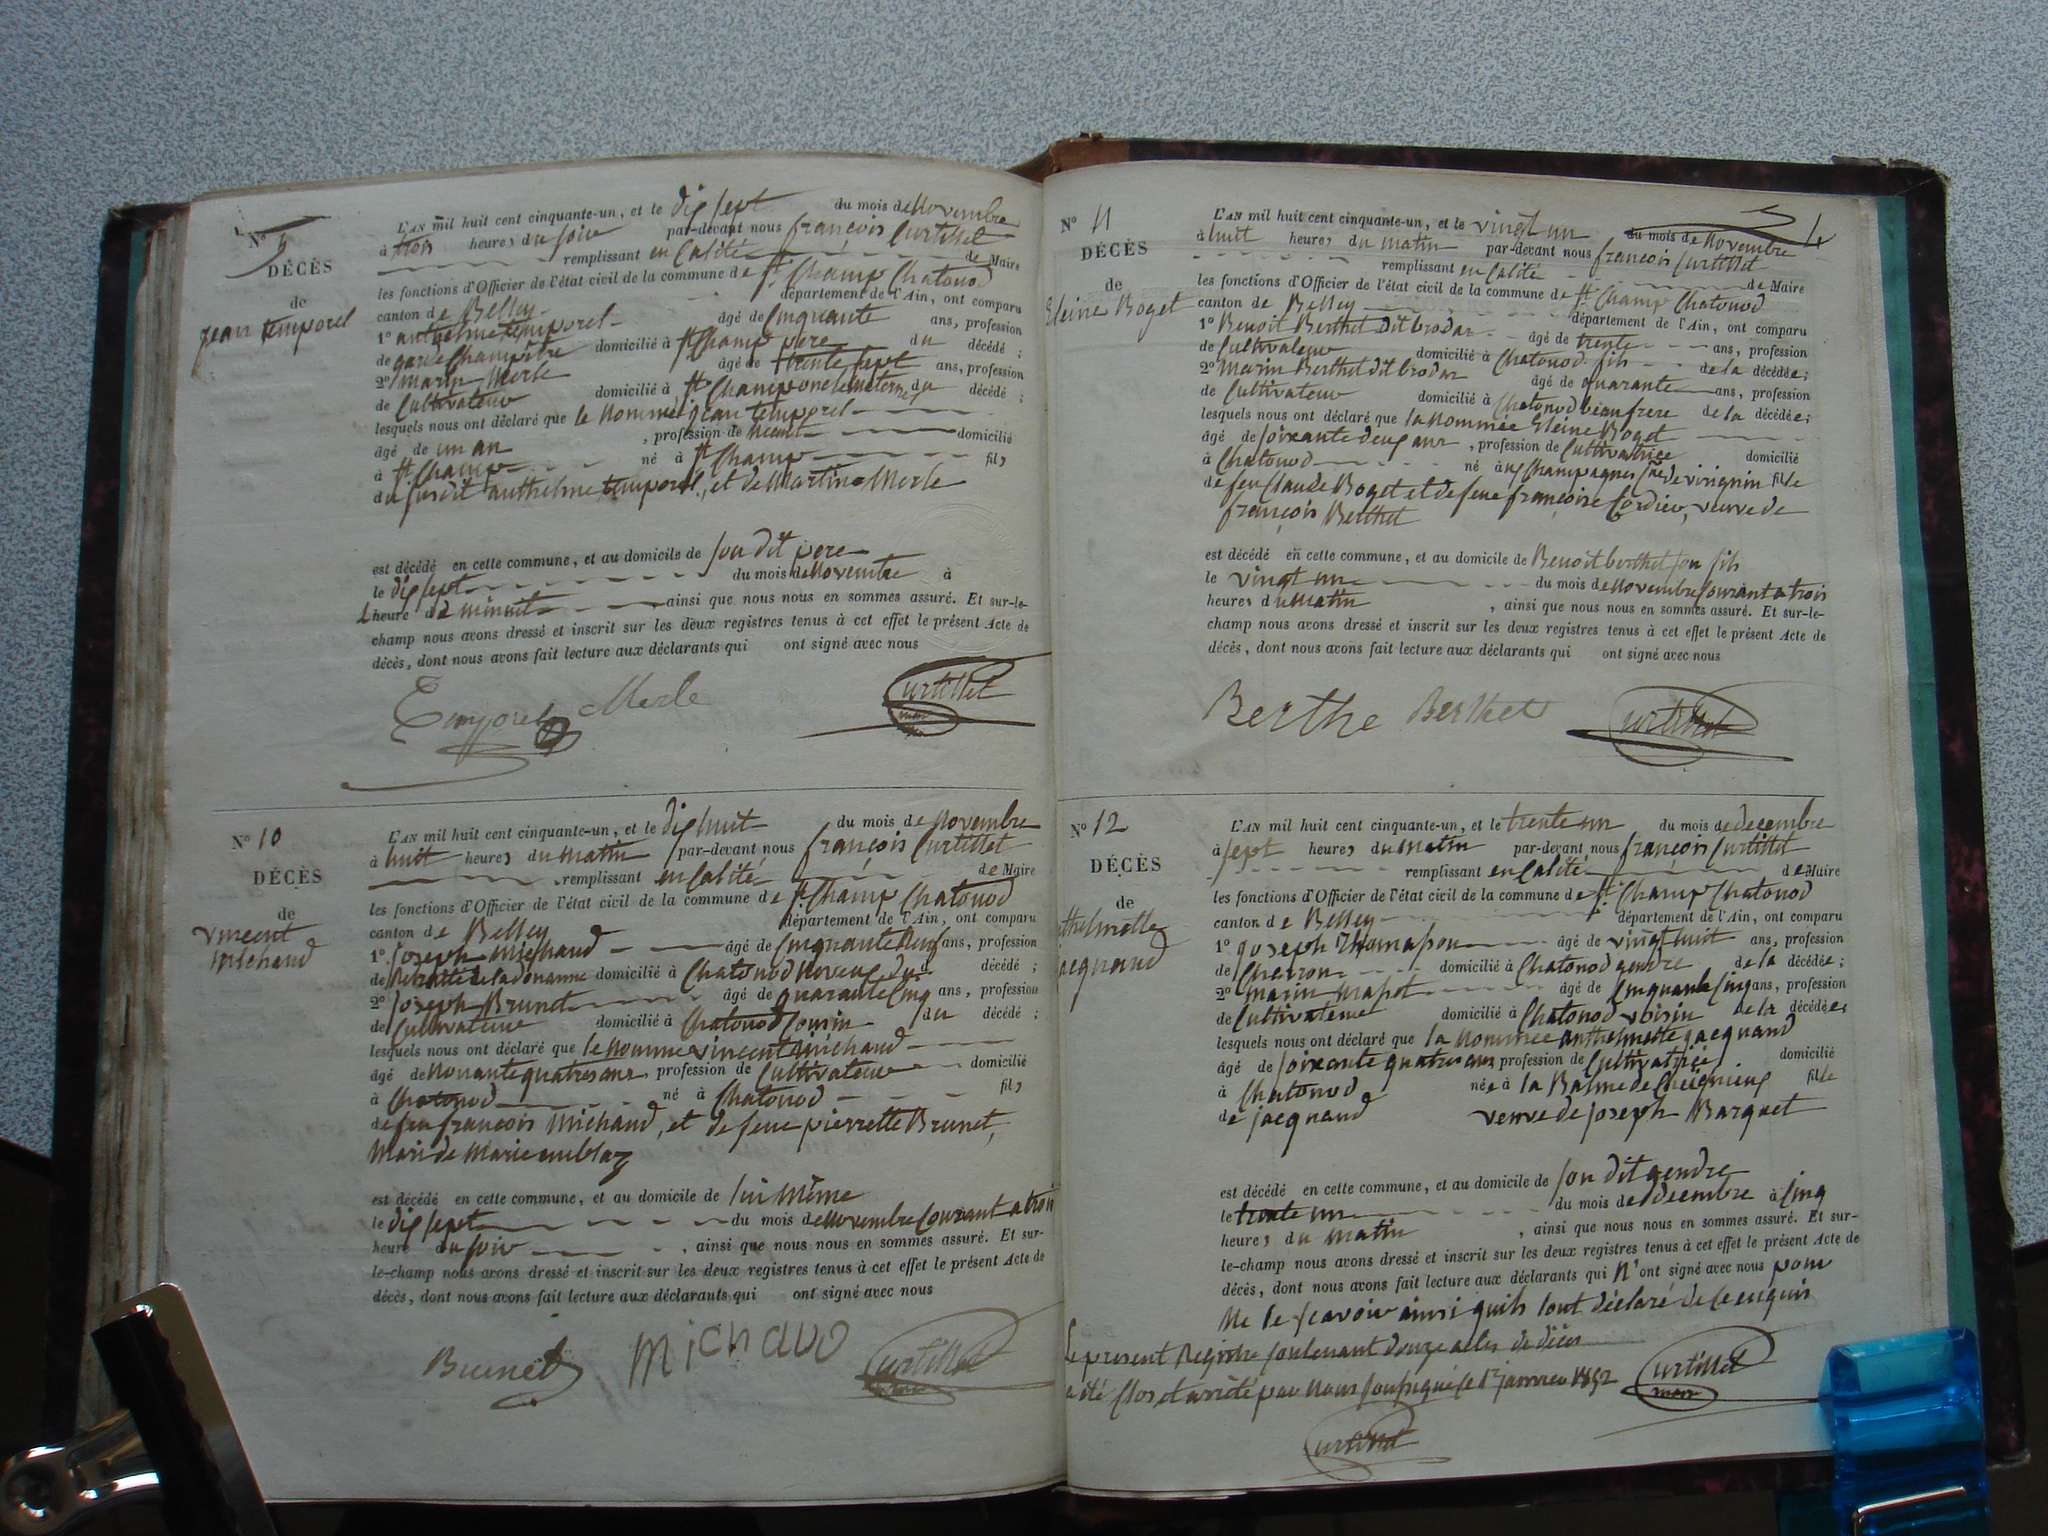 N° 9
DÉCÈS
de
jean temporel
L'AN mil huit cent cinquante-un, et le dix sept du mois de Novembre
à trois heures du soir par-devant nous françois Curtillet
remplissant en Calité de Maire
les fonctions d'Officier de l'état civil de la commune de St Champ Chatonod
canton de Belley département de l'Ain, ont comparu
1° anthelme temporel âgé de Cinquante ans, profession
de garde Champêtre domicilié à St Champ pere du décédé ;
2° marin Merle âgé de trente sept ans, profession
de Cultivateur domicilié à St Champ oncle maternel du décédé ;
lesquels nous ont déclaré que le Nommé jean temporel
âgé de un an , profession de Neant domicilié
à St Champ né à St Champ fils
du susdit anthelme temporel, et de Martine Merle
est décédé en cette commune, et au domicile de son dit pere
le dix sept du mois de Novembre à
l heure de minuit ainsi que nous nous en sommes assuré. Et sur-le-
champ nous avons dressé et inscrit sur les deux registres tenus à cet effet le présent Acte de
décès, dont nous avons fait lecture aux déclarants qui ont signé avec nous
Temporel Merle Curtillet
maire
N° 10
DÉCÈS
de
vincent
Michaud
L'AN mil huit cent cinquante-un, et le dix huit du mois de Novembre
à huit heures du matin par-devant nous françois Curtillet
remplissant en Calité de Maire
les fonctions d'Officier de l'état civil de la commune de St Champ Chatonod
canton de Belley département de l'Ain, ont comparu
1° joseph Michaud âgé de Cinquante neuf ans, profession
de Retraité de la douanne domicilié à Chatonod Neveu du décédé ;
2° joseph Brunet âgé de quarante Cinq ans, profession
de Cultivateur domicilié à Chatonod Cousin du décédé ;
lesquels nous ont déclaré que le Nommé vincent Michaud
âgé de Nonante quatre ans, profession de Cultivateur domicilié
à Chatonod né à Chatonod fils
de feu françois Michaud, et de feue pierrette Brunet,
Mari de Marie
est décédé en cette commune, et au domicile de lui même
le dix sept du mois de Novembre Courant a trois
heure du soir , ainsi que nous nous en sommes assuré. Et sur-
le-champ nous avons dressé et inscrit sur les deux registres tenus à cet effet le présent Acte de
décès, dont nous avons fait lecture aux déclarants qui ont signé avec nous
Brunet Michaud Curtillet
maire
N° 11
DÉCÈS
de
Eleine Boget
L'AN mil huit cent cinquante-un, et le vingt un du mois de Novembre
à huit heures du matin par-devant nous françois Curtillet
remplissant en Calité de Maire
les fonctions d'Officier de l'état civil de la commune de St Champ Chatonod
canton de Belley département de l'Ain, ont comparu
1° Benoit Berthet dit brodar âgé de trente ans, profession
de Cultivateur domicilié à Chatonod fils de la décédée ;
2° Marin Berthet dit brodar âgé de quarante ans, profession
de Cultivateur domicilié à Chatonod beau frere de la décédée ;
lesquels nous ont déclaré que la Nommée Eleine Boget
âgé de soixante deux ans , profession de Cultivatrice domicilié
à Chatonod né à Champagne de virignin fille
de feu Claude Boget et de feue françoise Cordier, veuve de
françois Berthet
est décédé en cette commune, et au domicile de Benoit berthet son fils
le vingt un du mois de Novembre Courant a trois
heures du Matin , ainsi que nous nous en sommes assuré. Et sur-le-
champ nous avons dressé et inscrit sur les deux registres tenus à cet effet le présent Acte de
décès, dont nous avons fait lecture aux déclarants qui ont signé avec nous
Berthe Berthet Curtillet
N° 12
DÉCÈS
de
thelmette
jacquand
L'AN mil huit cent cinquante-un, et le trente un du mois de decembre
à sept heures du Matin par-devant nous françois Curtillet
remplissant en Calité de Maire
les fonctions d'Officier de l'état civil de la commune de St Champ Chatonod
canton de Belley département de l'Ain, ont comparu
1° joseph Thomasson âgé de vingt huit ans, profession
de Charron domicilié à Chatonod gendre de la décédée ;
2° Marin Mapot âgé de Cinquante Cinq ans, profession
de Cultivateur domicilié à Chatonod voisin de la décédée ;
lesquels nous ont déclaré que la Nommée anthelmette jacquand
âgé de soixante quatre ans profession de Cultivatrice domicilié
à Chatonod née à la Balme de fille
de jacquand veuve de joseph Barquet
est décédé en cette commune, et au domicile de son dit gendre
le trente un du mois de decembre à Cinq
heures du Matin , ainsi que nous nous en sommes assuré. Et sur-
le-champ nous avons dressé et inscrit sur les deux registres tenus à cet effet le présent Acte de
décès, dont nous avons fait lecture aux déclarants qui n'ont signé avec nous pour
Ne le scavoir ainsi quils lont déclaré de ce enquis
Le present Registre Contenant douze actes de décès
a été Clos et arrêté par Nous soussigné le 1er janvier 1852 Curtillet
maire
Curtillet